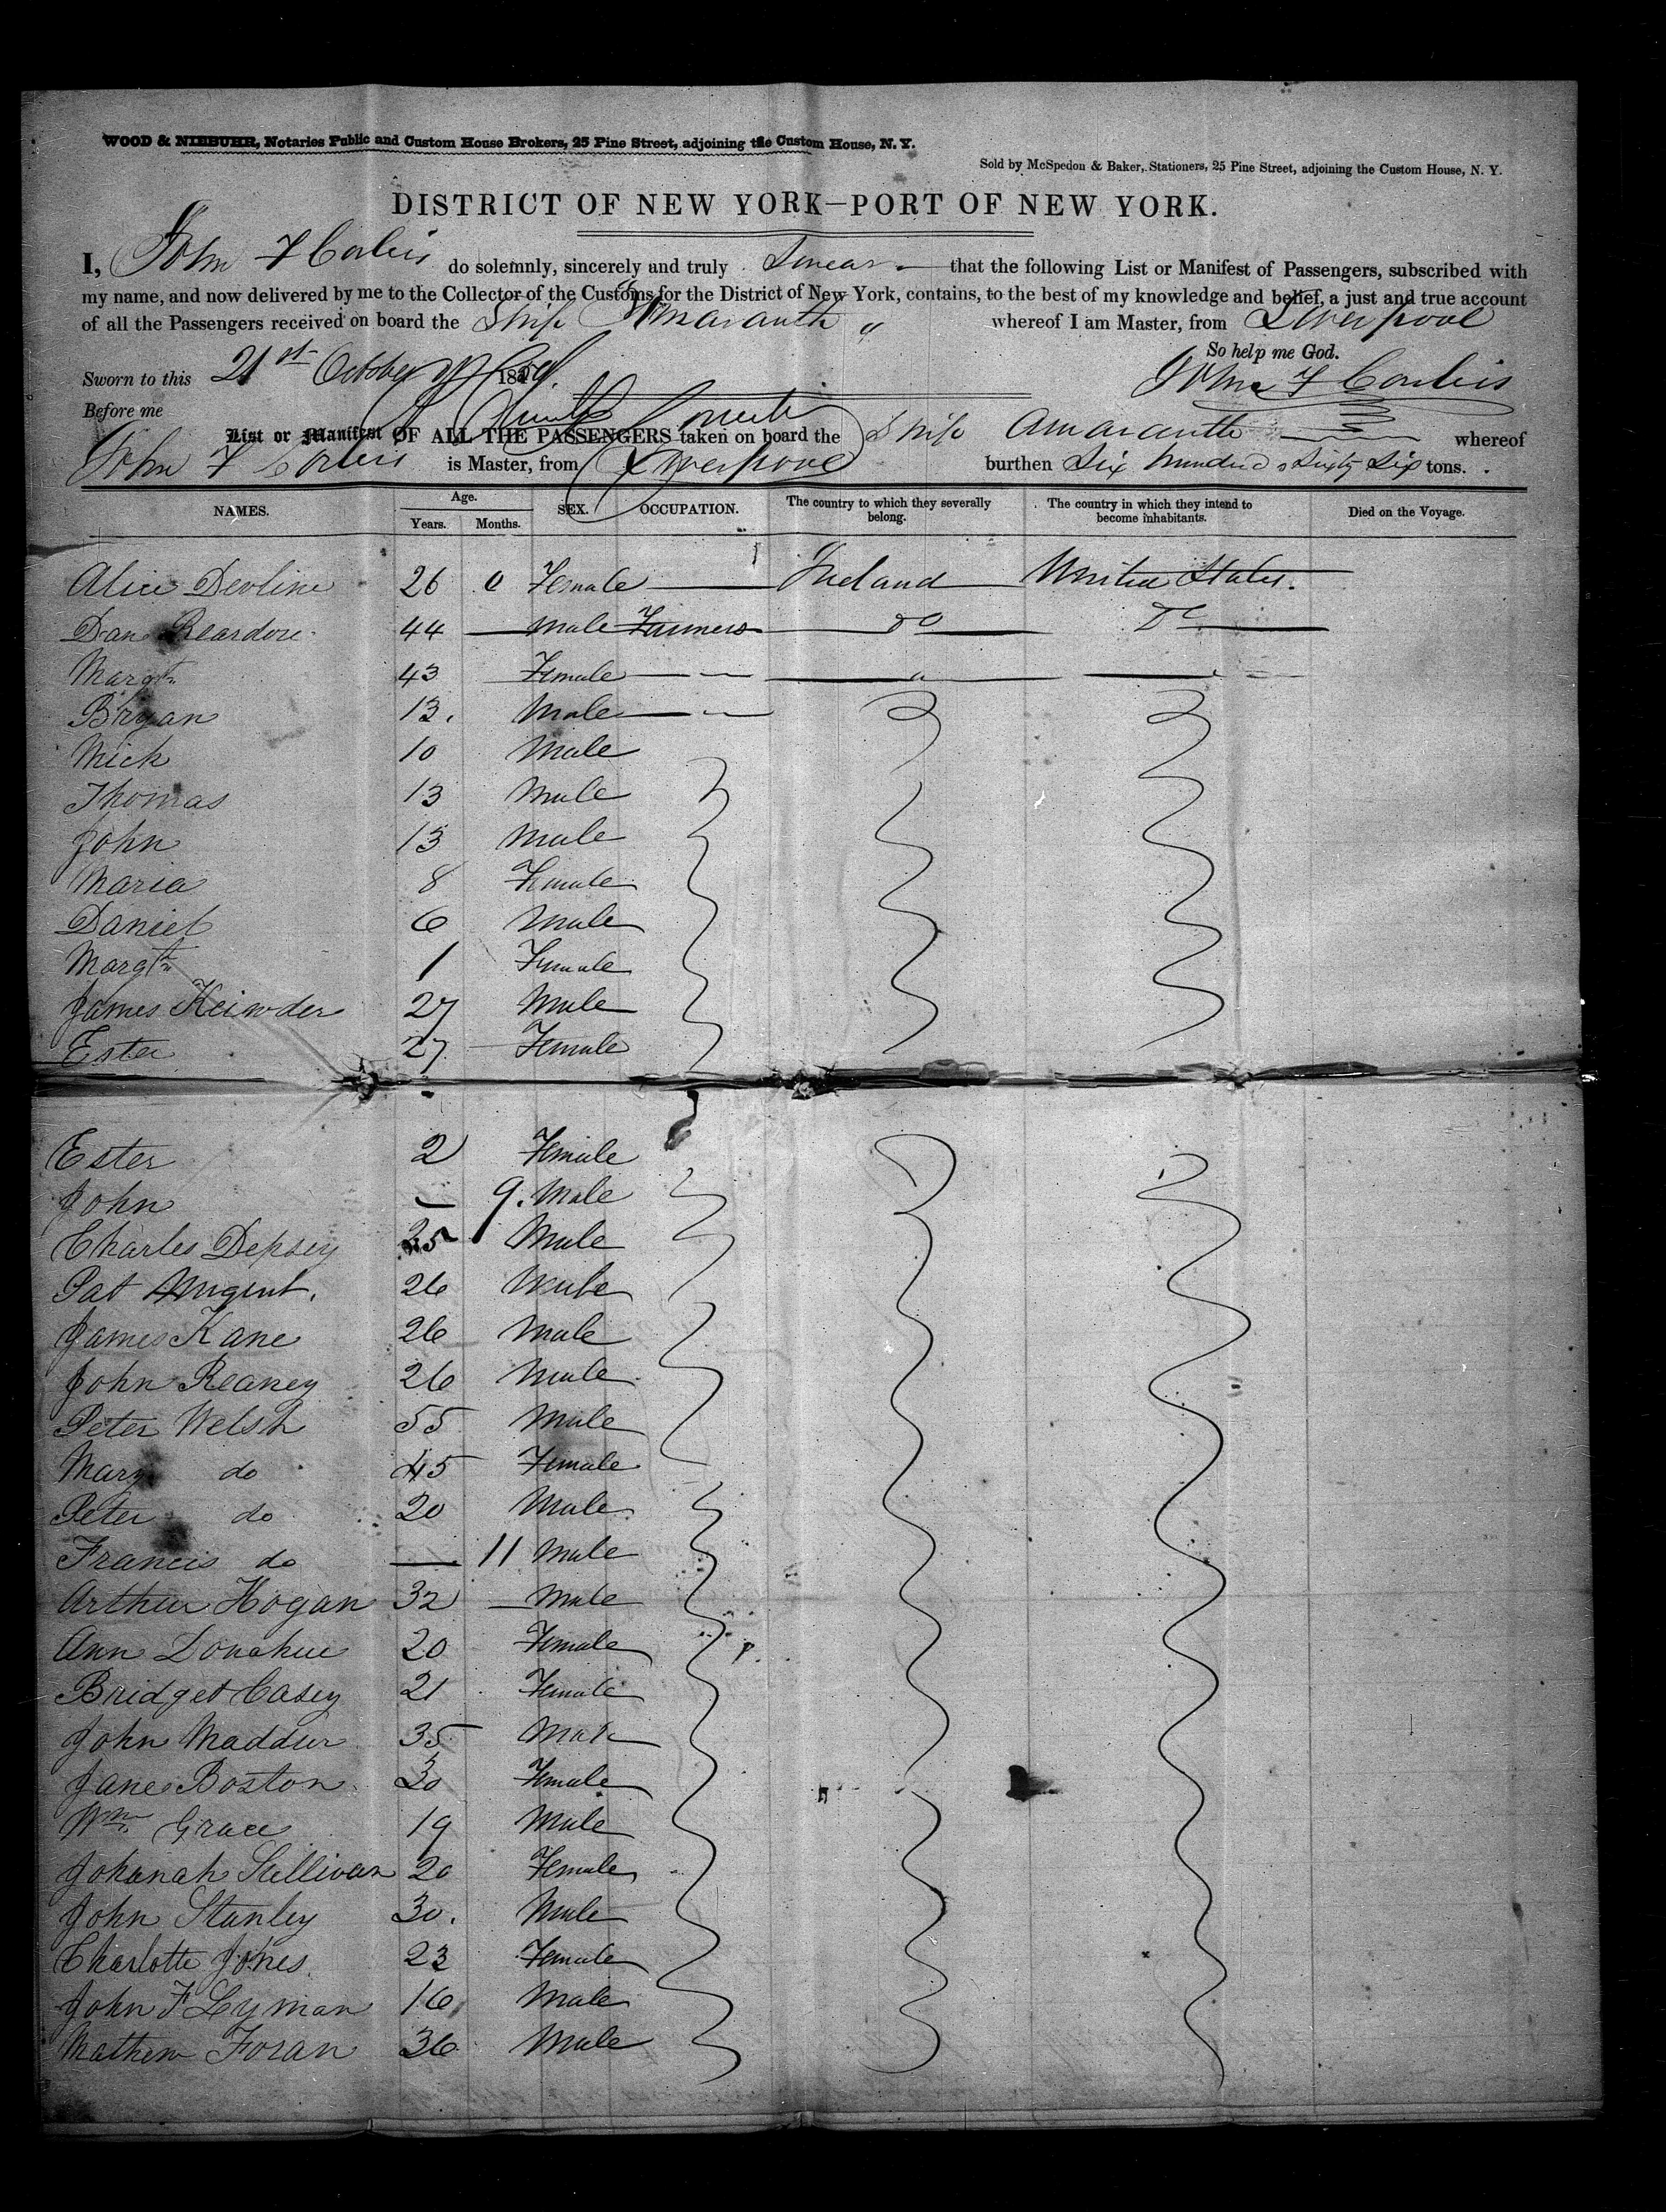 WOOD & NIEBUHR, Notaries Public and Custom House Brokers, 25 Pine Street, adjoining the Custom House, N. Y.
Sold by McSpedon & Baker, Stationers, 25 Pine Street, adjoining the Custom House, N. Y.
DISTRICT OF NEW YORK—PORT OF NEW YORK.
I, John F Corbis do solemnly, sincerely and truly Swear that the following List or Manifest of Passengers, subscribed with
my name, and now delivered by me to the Collector of the Customs for the District of New York, contains, to the best of my knowledge and belief, a just and true account
of all the Passengers received on board the Ship Amaranth " whereof I am Master, from Liverpool
So help me God.
Sworn to this 21st October 18
John F Corbis
Before me
List or Manifest OF ALL THE PASSENGERS taken on board the Ship Amaranth whereof
John F Corbis is Master, from Liverpool burthen Six hundred & Sixty Six tons.
NAMES. Age. Years. Months. SEX. OCCUPATION. The country to which they severally belong. The country in which they intend to become inhabitants. Died on the Voyage.
Alice Devline 26 0 Female Ireland United States.
Dan Reardon 44 Male Farmers do Do
Margt 43 Female "
Bryan 13. Male
Mick 10 Male
Thomas 13 Male
John 13 Male
Maria 8 Female
Daniel 6 Male
Margt 1 Female
James 27 Male
Ester 27 Female
Ester 2 Female
John — 9. Male
Charles Depsey 25 Male
Pat Nugent. 26 Male
James Kane 26 Male
John Reaney 26 Male
Peter Welsh 55 Male
Mary do 45 Female
Peter do 20 Male
Francis do — 11 Male
Arthur Hogan 32 Male
Ann Donahue 20 Female
Bridget Casey 21 Female
John Maddur 35 Male
Jane Boston 30 Female
Wm. Grace 19 Male
Johanah Sullivan 20 Female
John Stanley 30. Male
Charlotte Jones 23 Female
John F Lyman 16 Male
Mathew Foran 36 Male